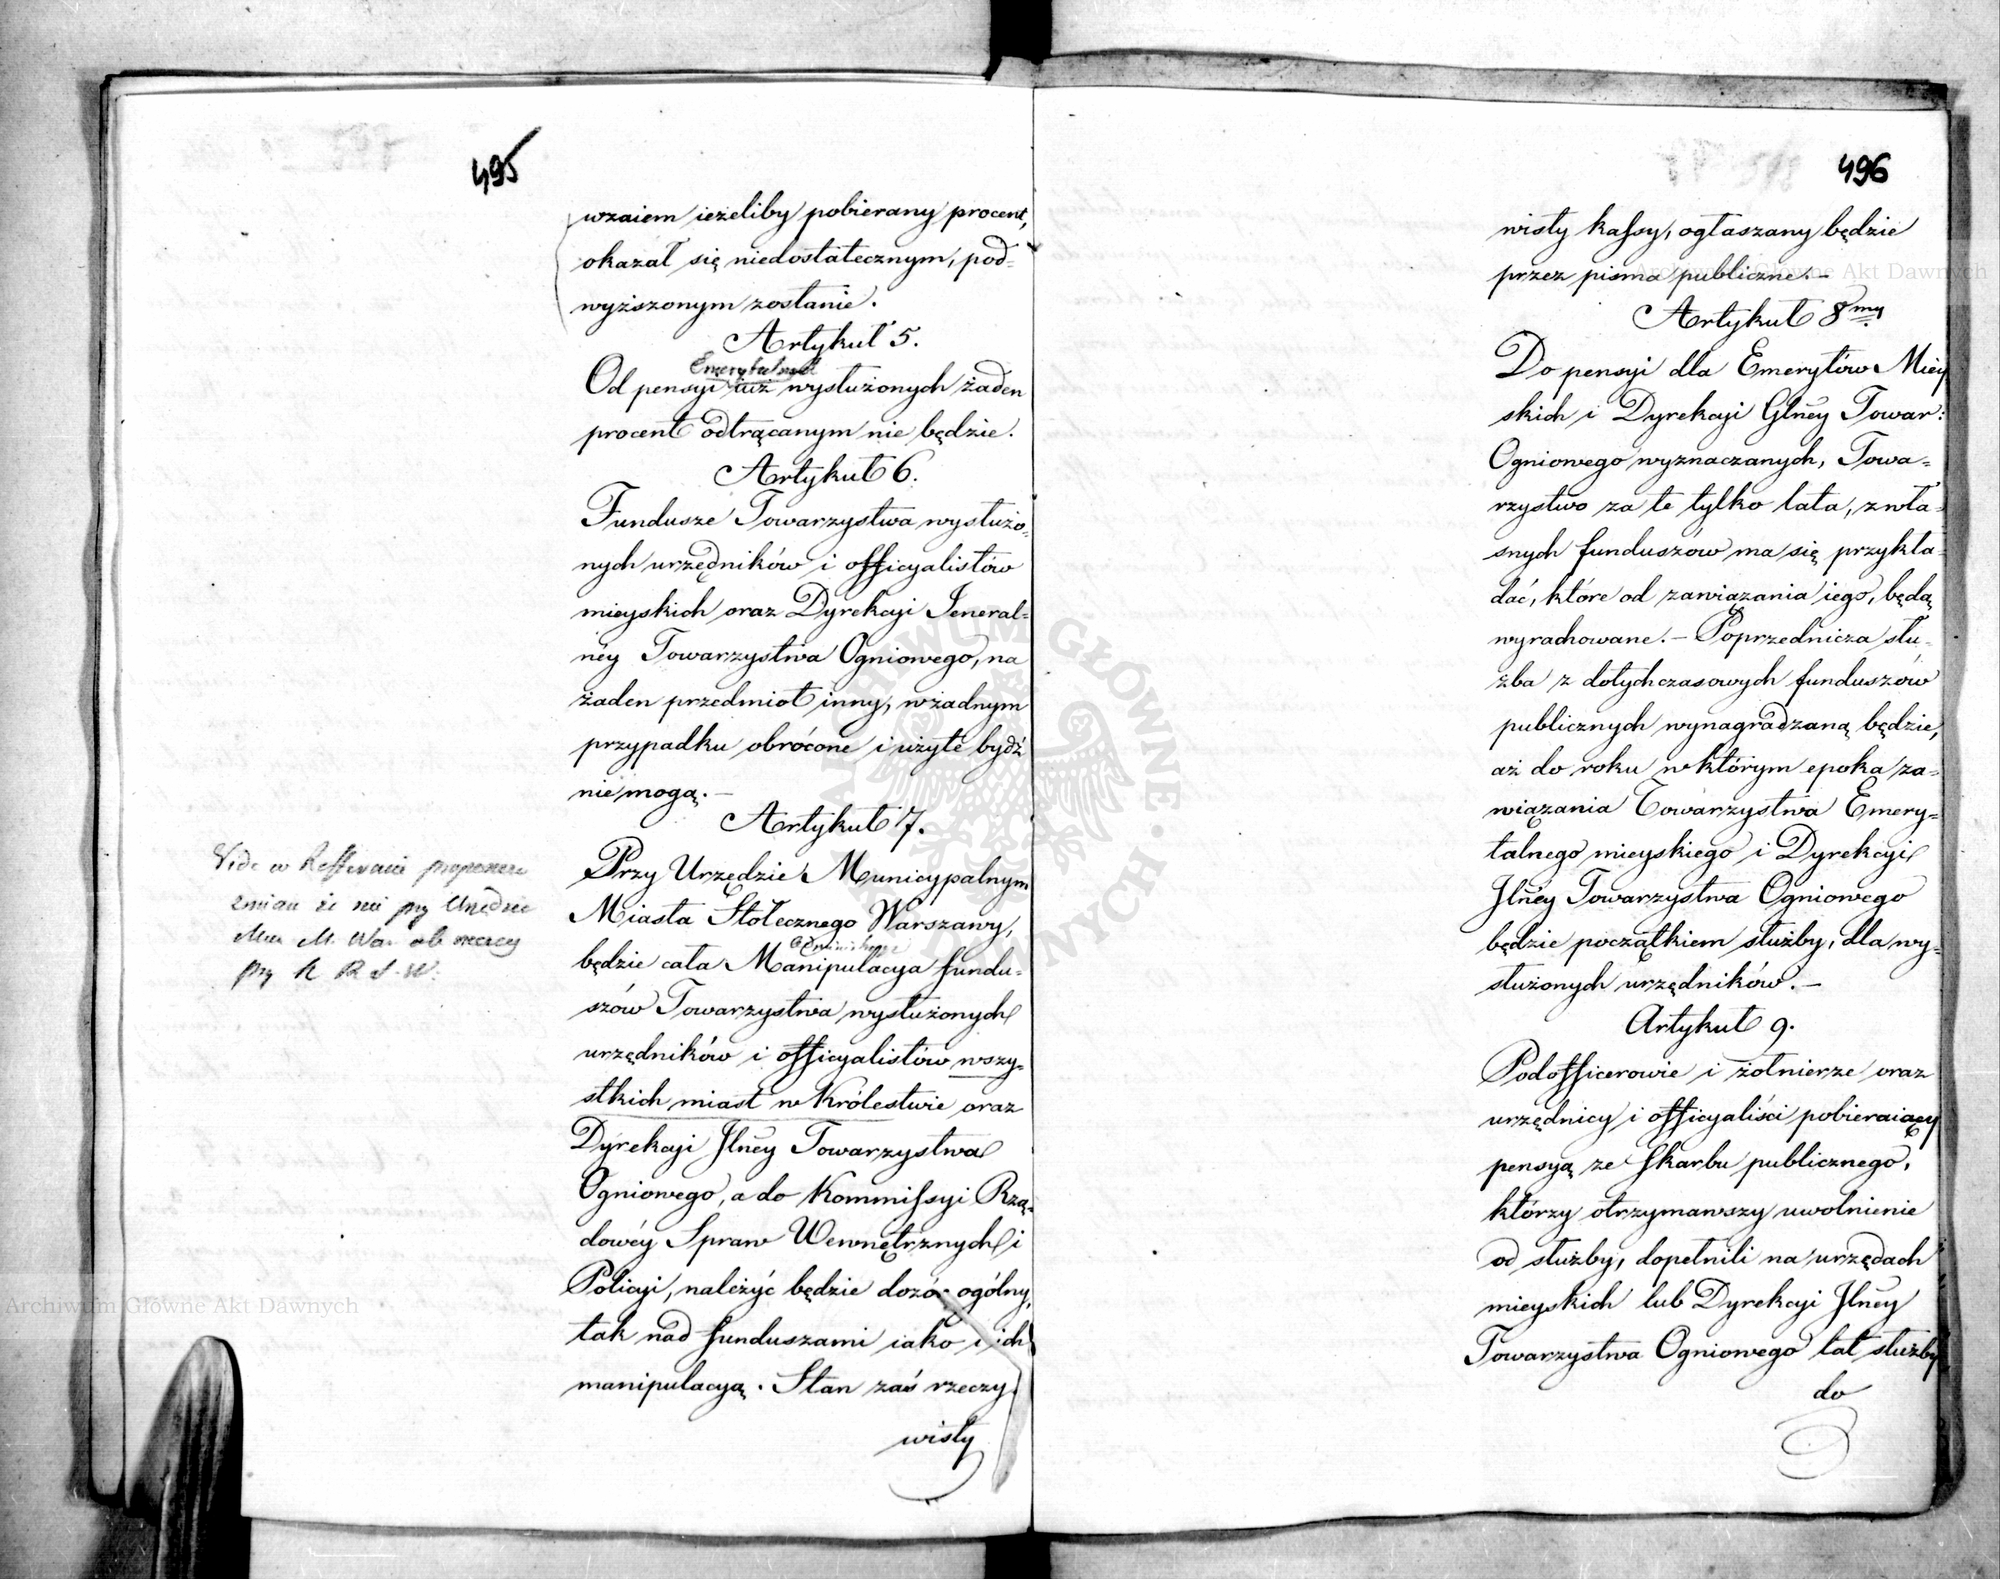 495
wzaiem ieżeliby pobierany procent,
okazał się niedostatecznym, pod-
wyższonym zostanie.
Artykuł 5.
Emerytalnych
Od pensyi iuż wysłużonych żaden
procent odtrącanym nie będzie.
Artykuł 6.
Fundusze Towarzystwa wysłużo-
nych urzędników i officyalistów
mieyskich oraz Dyrekcyi Jeneral-
ney Towarzystwa Ogniowego, na
żaden przedmiot inny, w żadnym
przypadku obrócone i użyte bydź
nie mogą. —
Artykuł 7.
Przy Urzędzie Municypalnym
Miasta Stołecznego Warszawy,
będzie cała Manipulacya fundu-
szów Towarzystwa wysłużonych
urzędników i officyalistów wszy-
stkich miast w Królestwie oraz
Dyrekcyi Jlney Towarzystwa
Ogniowego, a do Kommissyi Rzą-
dowéy Spraw Wewnętrznych i
Policyi, należyć będzie dozór ogólny,
tak nad funduszami iako i ich
manipulacyą. Stan zaś rzeczy-
wisty
Vide w
zmian że nie przy Urzędzie
M. War. ale raczey
przy K R S. W.
496
wisty kassy, ogłaszany będzie
przez pisma publiczne. —
Artykuł 8my
Do pensyi dla Emerytów Miey
skich i Dyrekcyi Glney Towar:
Ogniowego wyznaczanych, Towa-
rzystwo za te tylko lata, z wła-
snych funduszów ma się przykła-
dać, które od zawiązania iego, będą
wyrachowane. — Poprzednicza słu-
żba z dotychczasowych funduszów
publicznych wynagradzaną będzie,
aż do roku w którym epoka za-
wiązania Towarzystwa Emery-
talnego mieyskiego i Dyrekcyi
Jlney Towarzystwa Ogniowego
będzie początkiem służby, dla wy-
służonych urzędników. —
Artykuł 9.
Podofficerowie i żołnierze oraz
urzędnicy i officyaliści pobieraiący
pensyą ze Skarbu publicznego,
którzy otrzymawszy uwolnienie
od służby, dopełnili na urzędach
mieyskich lub Dyrekcyi Jlney
Towarzystwa Ogniowego lat służby
do
Archiwum Główne Akt Dawnych
Archiwum Główne Akt Dawnych
ARCHIWUM GŁÓWNE AKT DAWNYCH